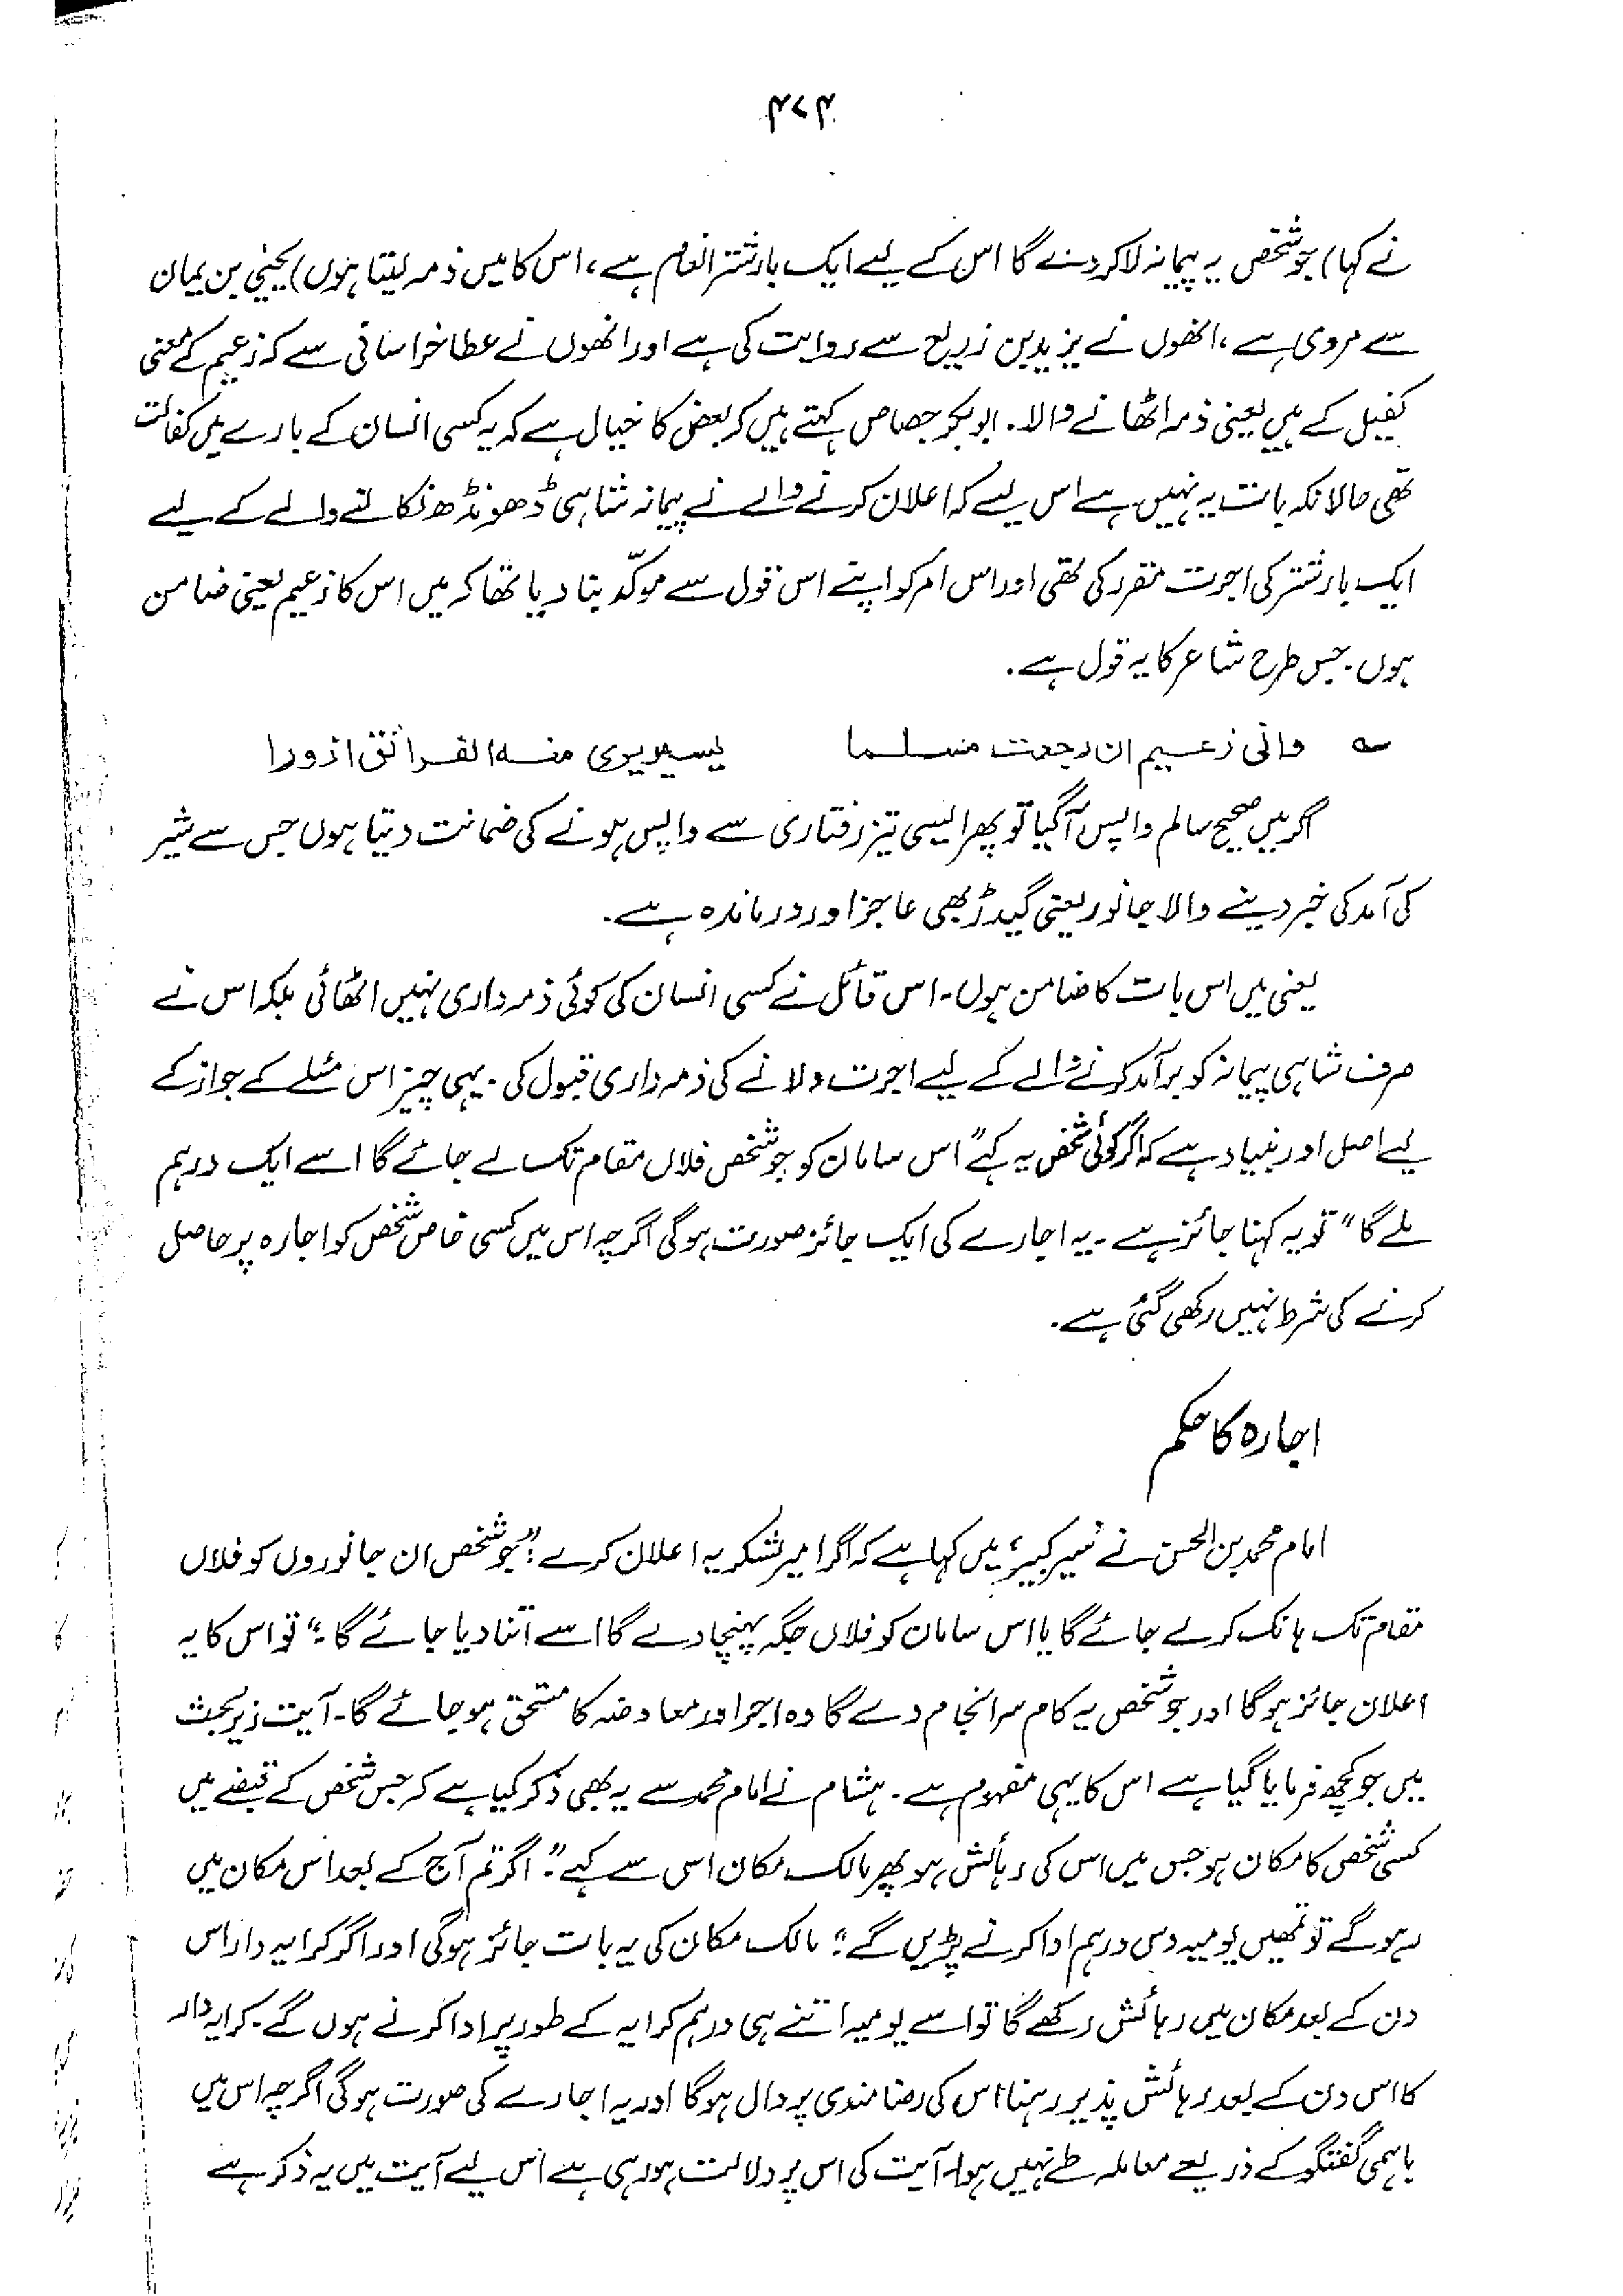 ۴۷۴
نے کہا) جو شخص یہ پیمانہ لا کر دے گا اس کے لیے ایک بار شتر انعام ہے، اس کا میں ذمہ لیتا ہوں) یحییٰ بن یمان
سے مروی ہے، انھوں نے یزید بن زریع سے روایت کی ہے اور انھوں نے عطا خراسانی سے کہ زعیم کے معنی
کفیل کے ہیں یعنی ذمہ اٹھانے والا۔ ابو بکر جصاص کہتے ہیں کہ بعض کا خیال ہے کہ یہ کسی انسان کے بارے میں کفالت
تھی حالانکہ بات یہ نہیں ہے اس لیے کہ اعلان کرنے والے نے پیمانہ شاہی ڈھونڈھ نکالنے والے کے لیے
ایک بار شتر کی اجرت مقرر کی تھی اور اس امر کو اپنے اس قول سے موکّد بنا دیا تھا کہ میں اس کا زعیم یعنی ضامن
ہوں۔ جس طرح شاعر کا یہ قول ہے۔
؎ وانی زعیم ان رجعت مسلما یسیر یری منه الفرانق ازورا
اگر میں صحیح سالم واپس آ گیا تو پھر ایسی تیز رفتاری سے واپس ہونے کی ضمانت دیتا ہوں جس سے شیر
کی آمد کی خبر دینے والا جانور یعنی گیدڑ بھی عاجز اور درماندہ ہے۔
یعنی میں اس بات کا ضامن ہوں۔ اس قائل نے کسی انسان کی کوئی ذمہ داری نہیں اٹھائی بلکہ اس نے
صرف شاہی پیمانہ کو برآمد کرنے والے کے لیے اجرت دلانے کی ذمہ داری قبول کی۔ یہی چیز اس مسئلے کے جواز کے
لیے اصل اور بنیاد ہے کہ اگر کوئی شخص یہ کہے "اس سامان کو جو شخص فلاں مقام تک لے جائے گا اسے ایک درہم
ملے گا" تو یہ کہنا جائز ہے۔ یہ اجارے کی ایک جائز صورت ہو گی اگرچہ اس میں کسی خاص شخص کو اجارہ پر حاصل
کرنے کی شرط نہیں رکھی گئی ہے۔
اجارہ کا حکم
امام محمد بن الحسن نے 'سیر کبیر' میں کہا ہے کہ اگر امیر لشکر یہ اعلان کرے: "جو شخص ان جانوروں کو فلاں
مقام تک ہانک کر لے جائے گا یا اس سامان کو فلاں جگہ پہنچا دے گا اسے اتنا دیا جائے گا۔" تو اس کا یہ
اعلان جائز ہو گا اور جو شخص یہ کام سرانجام دے گا وہ اجر اور معاوضہ کا مستحق ہو جائے گا۔ آیت زیر بحث
میں جو کچھ فرمایا گیا ہے اس کا یہی مفہوم ہے۔ ہشام نے امام محمد سے یہ بھی ذکر کیا ہے کہ جس شخص کے قبضے میں
کسی شخص کا مکان ہو جس میں اس کی رہائش ہو پھر مالک مکان اس سے کہے: "اگر تم آج کے بعد اس مکان میں
رہو گے تو تمھیں یومیہ دس درہم ادا کرنے پڑیں گے۔" مالک مکان کی یہ بات جائز ہو گی اور اگر کرایہ دار اس
دن کے بعد مکان میں رہائش رکھے گا تو اسے یومیہ اتنے ہی درہم کرایہ کے طور پر ادا کرنے ہوں گے۔ کرایہ دار
کا اس دن کے بعد رہائش پذیر رہنا اس کی رضامندی پر دال ہو گا اور یہ اجارے کی صورت ہو گی اگرچہ اس میں
باہمی گفتگو کے ذریعے معاملہ طے نہیں ہوا۔ آیت کی اس پر دلالت ہو رہی ہے اس لیے آیت میں یہ ذکر ہے